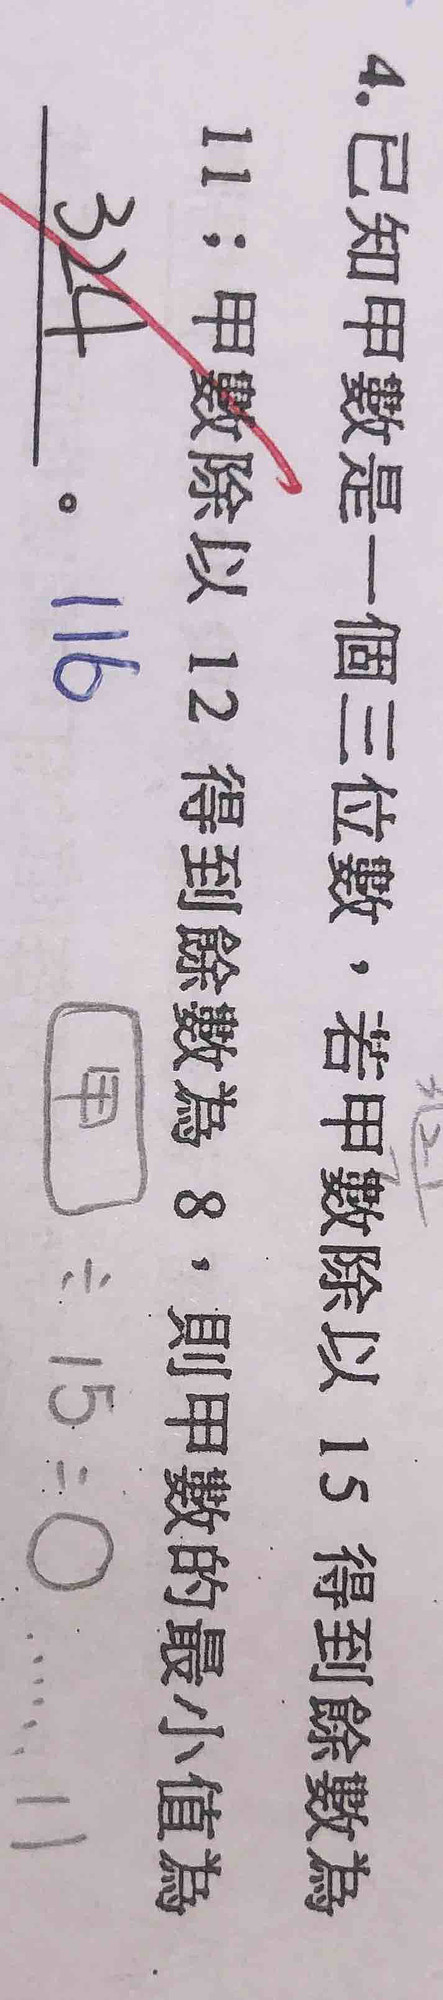 4. 已知甲數是一個三位數，若甲數除以 15 得到餘數為
11；甲數除以 12 得到餘數為 8，則甲數的最小值為
324。 116
甲 ÷ 15 = 0 …… 11